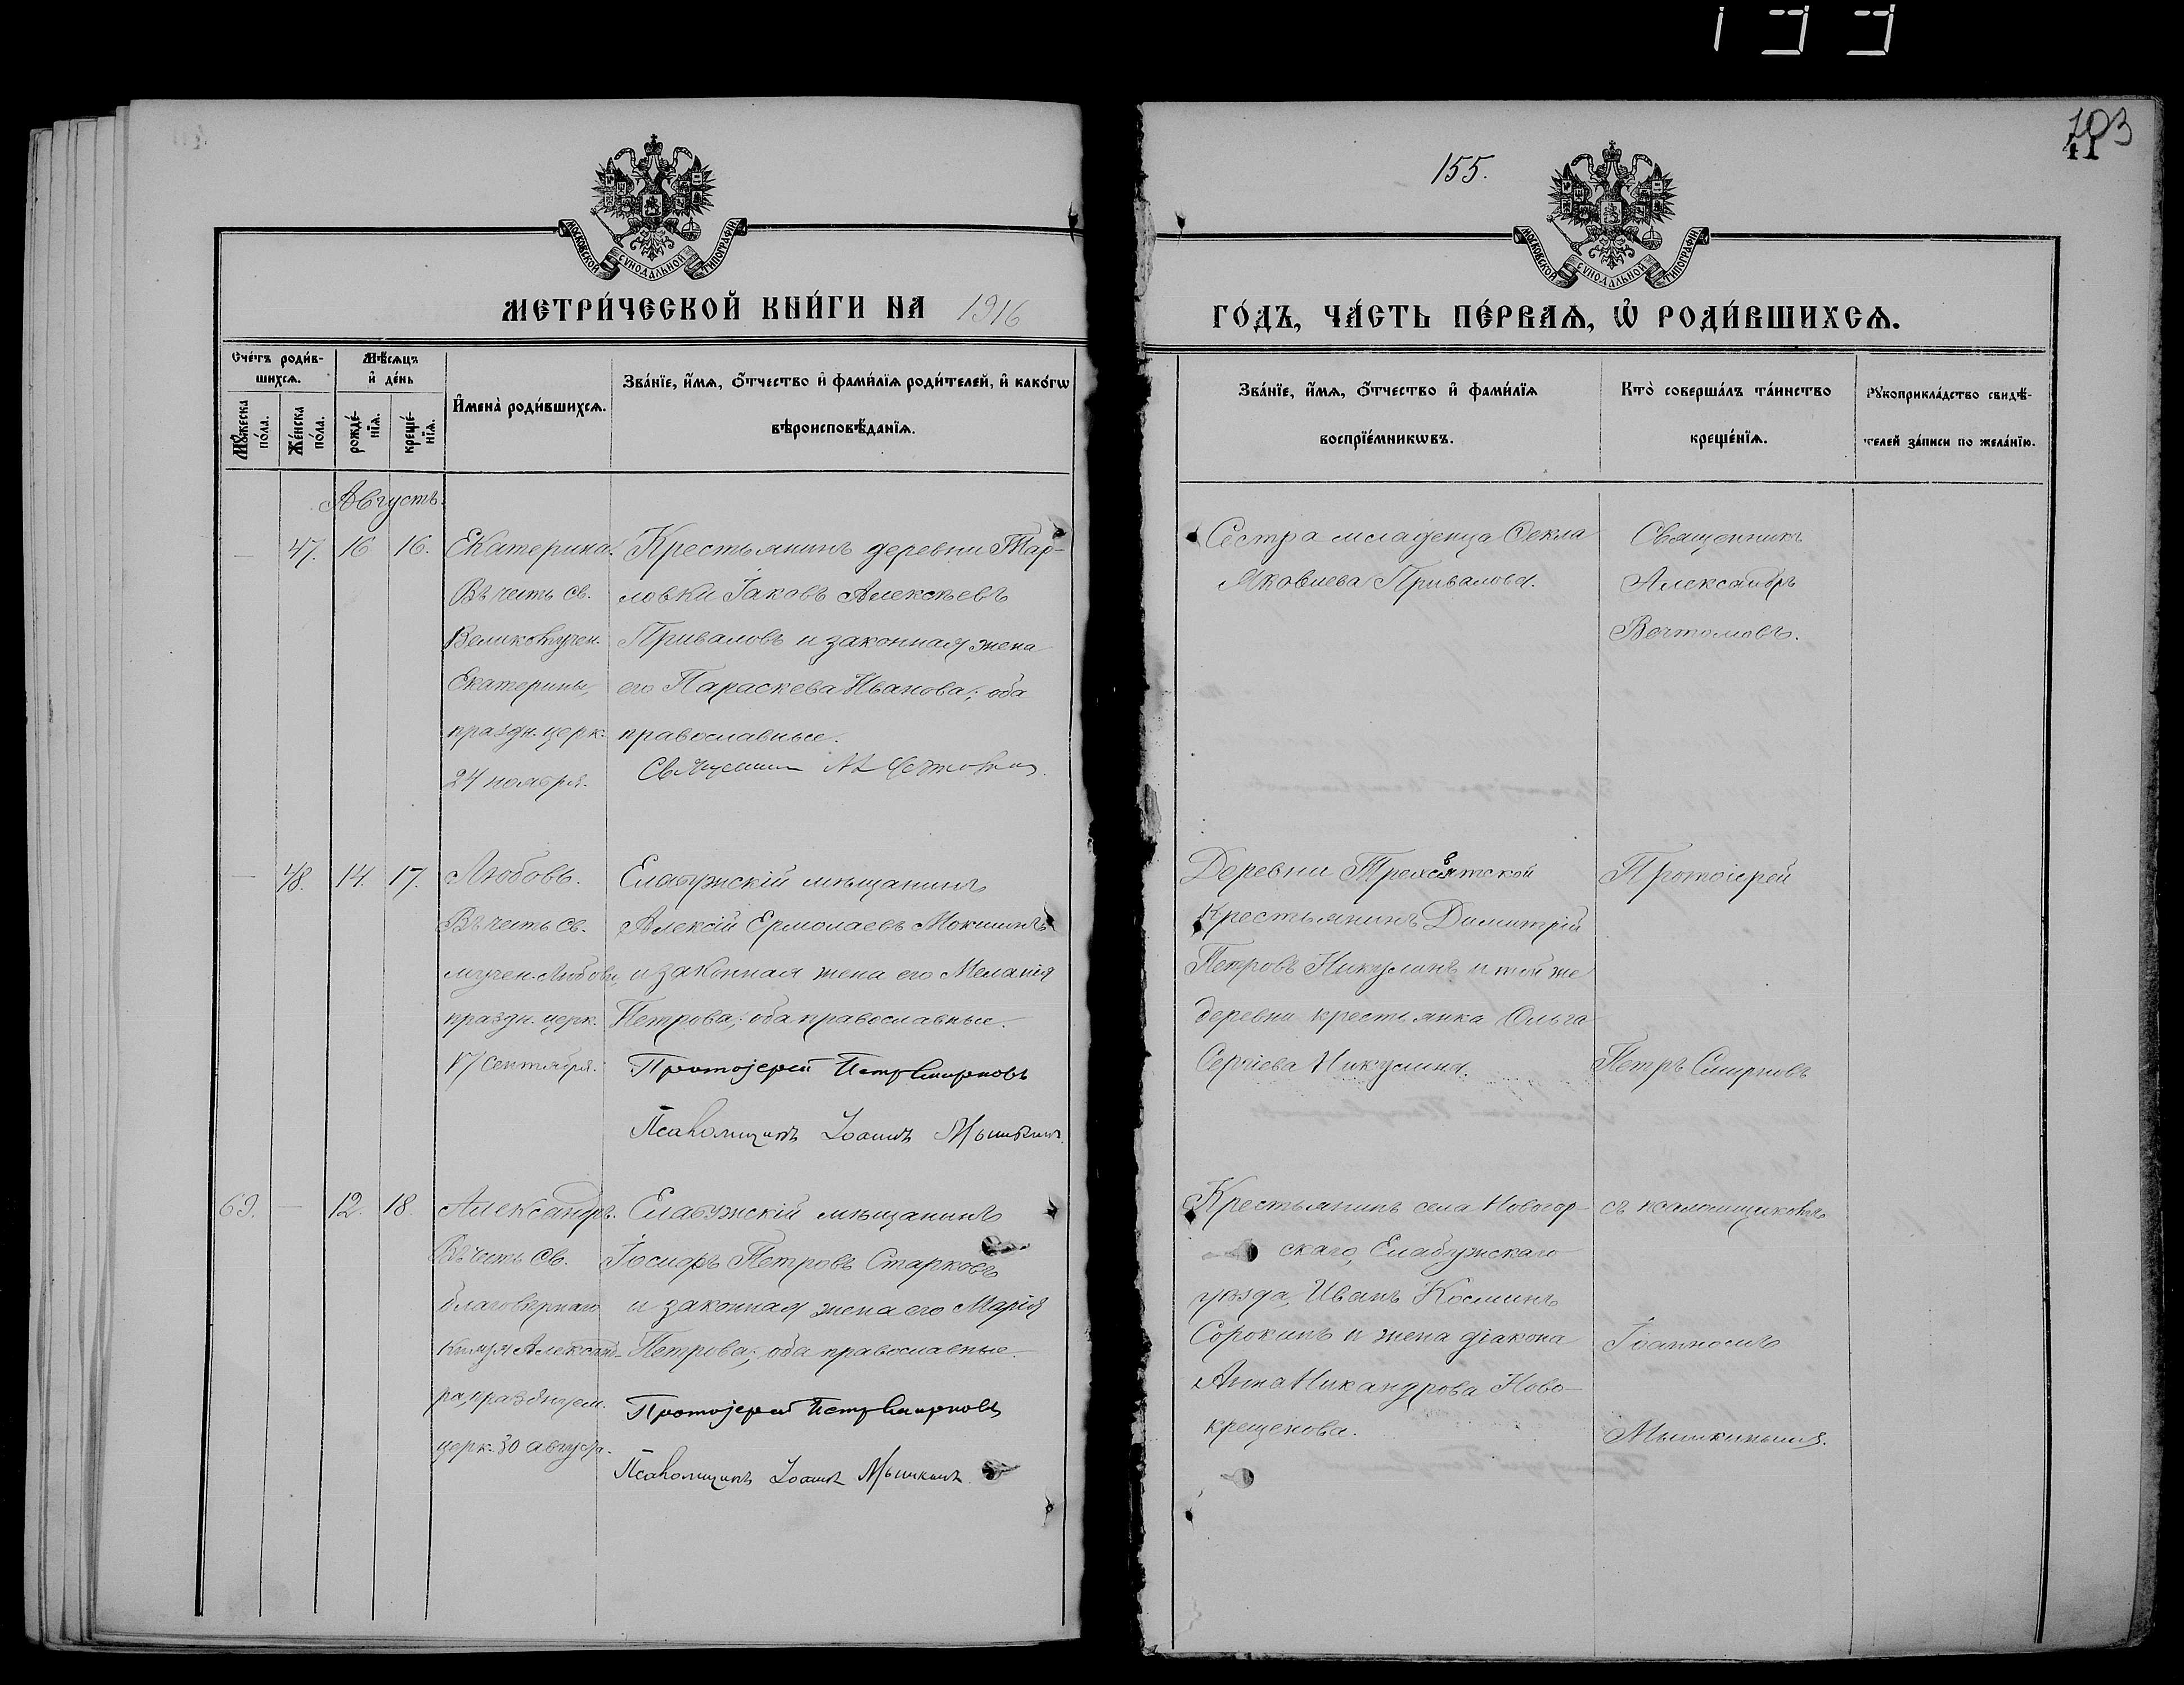 193
155.
103
41
МОСКОВСКОЙ СѴНОДАЛЬНОЙ ТИПОГРАФІИ
МОСКОВСКОЙ СѴНОДАЛЬНОЙ ТИПОГРАФІИ
МЕТРИ́ЧЕСКОЙ КНИ́ГИ НА 1916
ГО́ДЪ, ЧА́СТЬ ПЕ́РВАѦ, Ѽ РОДИ́ВШИХСѦ.
Сче́тъ роди́в-
шихсѧ.
Мꙋ́жеска по́ла.
Же́нска по́ла.
Мѣ́сѧцъ
и҆ де́нь
рожде́-
нїѧ.
креще́-
нїѧ.
И҆мена̀ роди́вшихсѧ.
Зва́нїе, и҆́мѧ, ѻ҆́тчество и҆ фами́лїѧ роди́телей, и҆ како́гѡ
вѣроисповѣ́данїѧ.
Зва́нїе, и҆́мѧ, ѻ҆́тчество и҆ фами́лїѧ
воспрїе́мникѡвъ.
Кто̀ соверша́лъ та́инство
креще́нїѧ.
Рꙋкоприкла́дство свидѣ́-
телей за́писи по жела́нїю.
Августъ.
— 47. 16 16.
Екатерина.
Въ честь св.
Великомучен.
Екатерины,
праздн. церк.
24 ноября.
Крестьянинъ деревни Тар-
ловки Іаковъ Алексѣевъ
Приваловъ и законная жена
его Параскева Иванова; оба
православные.
Священникъ
Сестра младенца Ѳекла
Яковлева Привалова.
Священникъ
Александръ
Вечтомовъ.
— 48. 14. 17.
Любовь.
Въ честь св.
мучен. Любови,
праздн. церк.
17 сентября.
Елабужскій мѣщанинъ
Алексій Ермолаевъ Мокшинъ
и законная жена его Меланія
Петрова; оба православные.
Протоіерей Петръ Смирновъ
Псаломщикъ Іоаннъ Мышкинъ.
Деревни Трехсвятской
Крестьянинъ Димитрій
Петровъ Никулинъ и той же
деревни крестьянка Ольга
Сергіева Никулина.
Протоіерей
Петръ Смирновъ
69. — 12. 18.
Александръ.
Въ честь св.
благовѣрнаго
Князя Александ-
ра, празднуем.
церк. 30 августа.
Елабужскій мѣщанинъ
Іосифъ Петровъ Старковъ
и законная жена его Марія
Петрова; оба православные.
Протоіерей Петръ Смирновъ
Псаломщикъ Іоаннъ Мышкинъ.
Крестьянинъ села Новогор-
скаго, Елабужскаго
уѣзда, Иванъ Косминъ
Сорокинъ и жена діакона
Анна Никандрова Ново-
крещенова.
съ псаломщикомъ
Іоанномъ
Мышкинымъ.